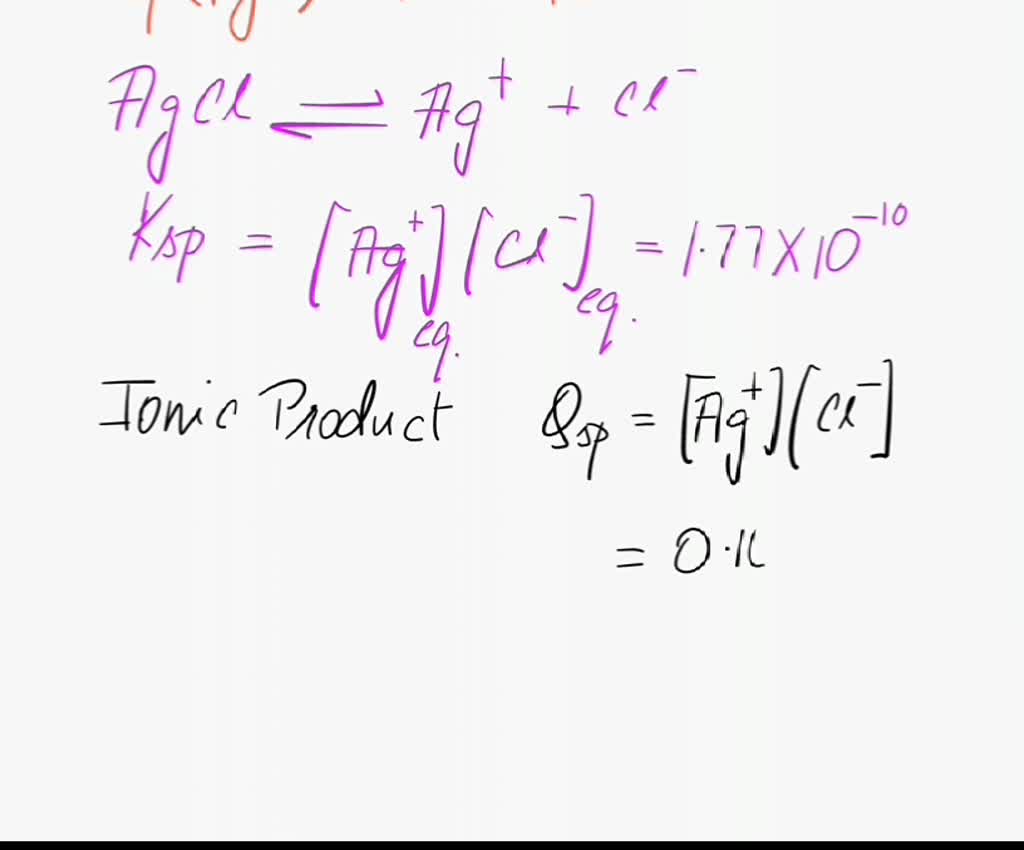 AgCl ⇌ Ag⁺ + Cl⁻
Ksp = [Ag⁺]eq. [Cl⁻]eq. = 1.77 X 10⁻¹⁰
Ionic Product Qsp = [Ag⁺][Cl⁻]
= 0.1